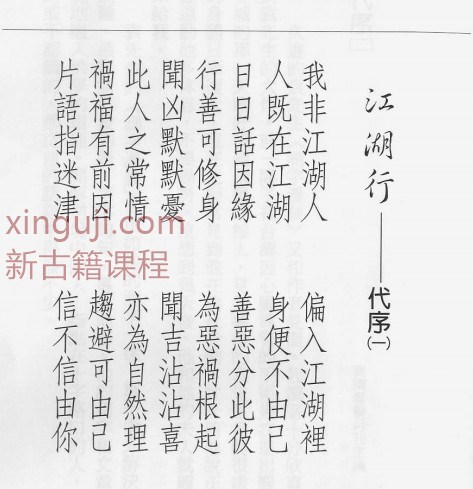 江湖行——代序(一)
我非江湖人　偏入江湖裡
人既在江湖　身便不由己
日日話因緣　善惡分此彼
行善可修身　為惡禍根起
聞凶默默憂　聞吉沾沾喜
此人之常情　亦為自然理
禍福有前因　趨避可由己
片語指迷津　信不信由你
xinguji.com
新古籍课程